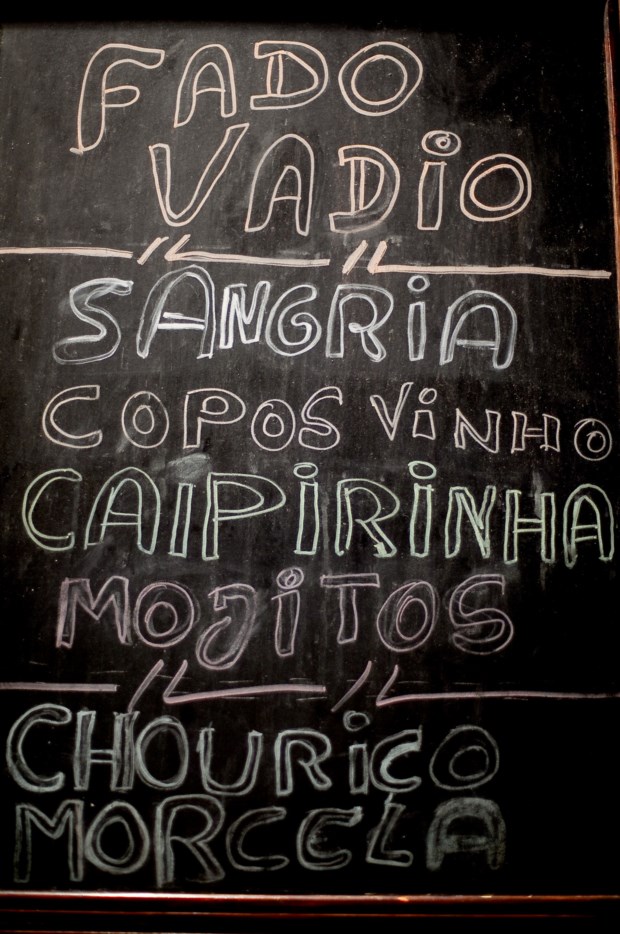 FADO
VADiO
SANGRiA
COPOS ViNHO
CAiPiRiNHA
MOJiTOS
CHOURiÇO
MORCELA